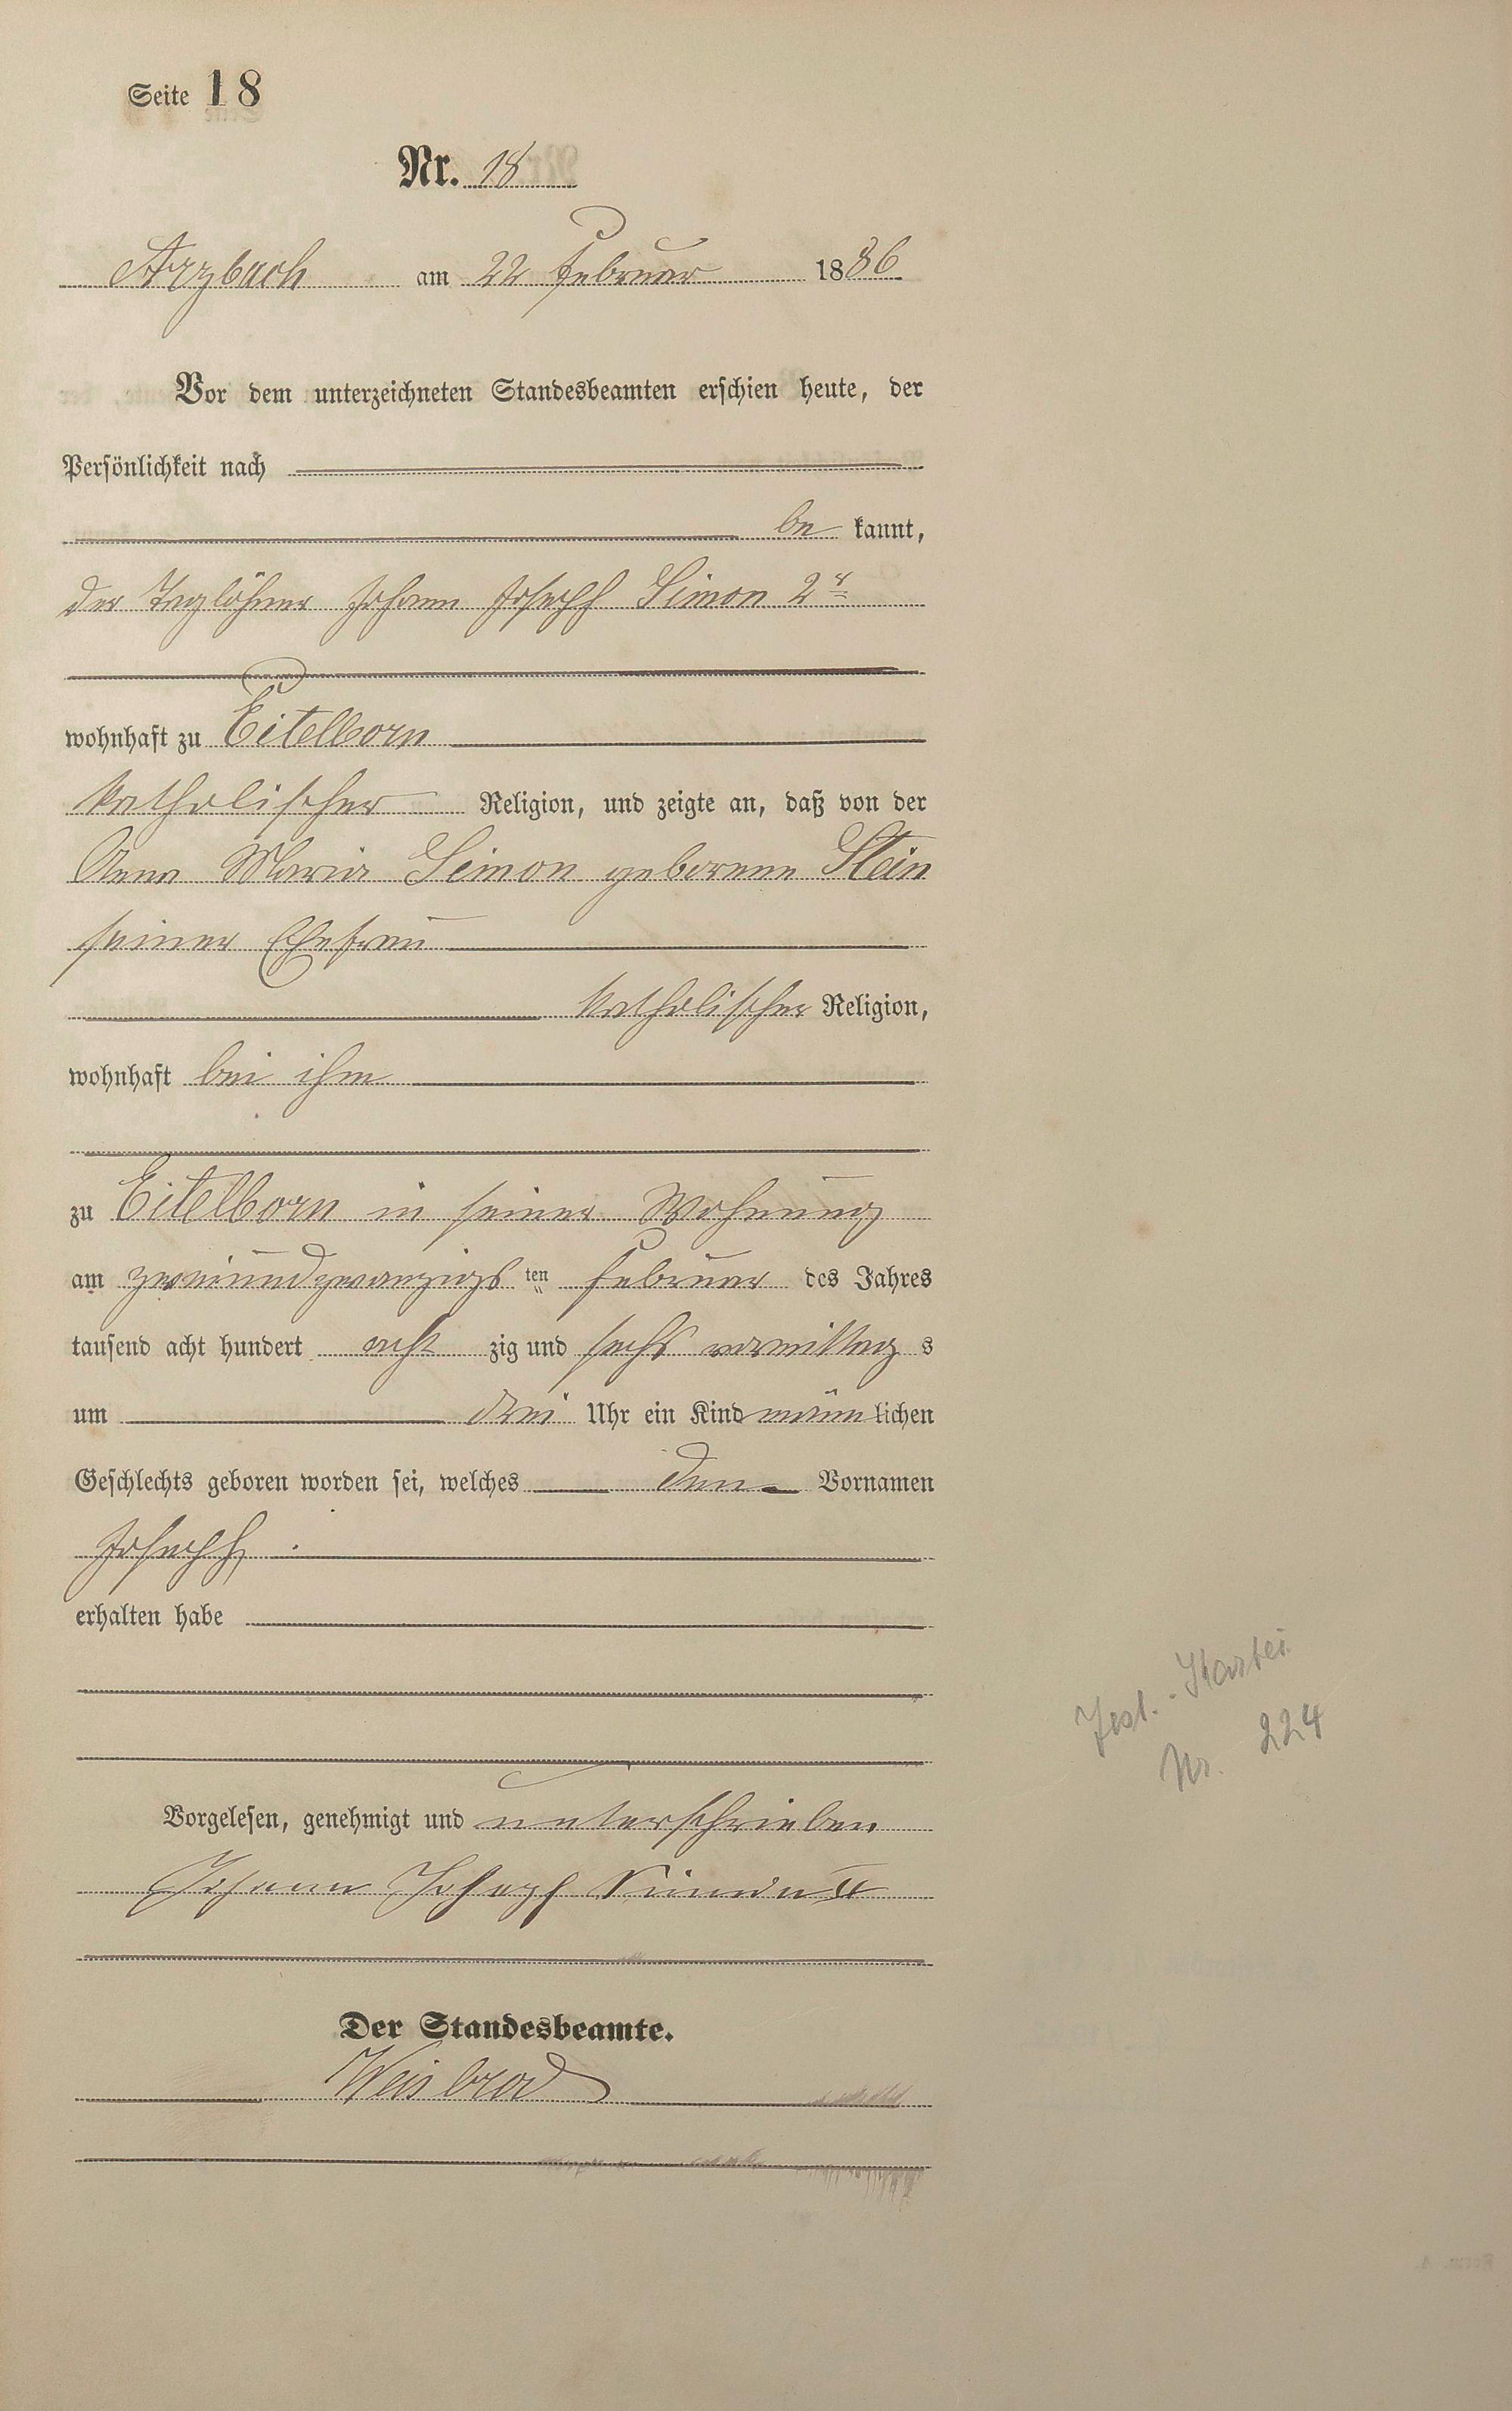 Seite 18
Nr. 18
Arzbach am 22 Februar 1886
Vor dem unterzeichneten Standesbeamten erschien heute, der
Persönlichkeit nach
be kannt,
der Taglöhner Johann Joseph Simon 2r
wohnhaft zu Eitelborn
katholischer Religion, und zeigte an, daß von der
Anna Maria Simon geborene Stein
seiner Ehefrau
katholischer Religion,
wohnhaft bei ihm
zu Eitelborn in seiner Wohnung
am zweiundzwanzigs ten Februar des Jahres
tausend acht hundert acht zig und sechs vormittag s
um drei Uhr ein Kind männlichen
Geschlechts geboren worden sei, welches den Vornamen
Joseph
erhalten habe
Vorgelesen, genehmigt und unterschrieben
Johann Joseph Simon II
Der Standesbeamte.
Weisbrod
Kartei
Nr. 224